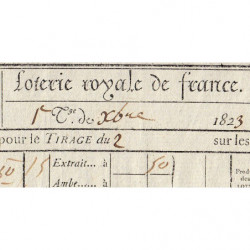 Loterie royale de france.
1 Tge. de Xbre 1823
pour le TIRAGE du 2 sur les
50 15 Extrait... à 50
Ambe... à